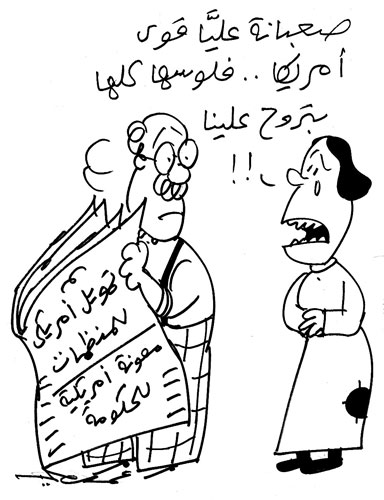 صعبانة عليَّا قوى
أمريكا .. فلوسها كلها
بتروح علينا
!!
تمويل أمريكى
للمنظمات
معونة أمريكية
للحكومة